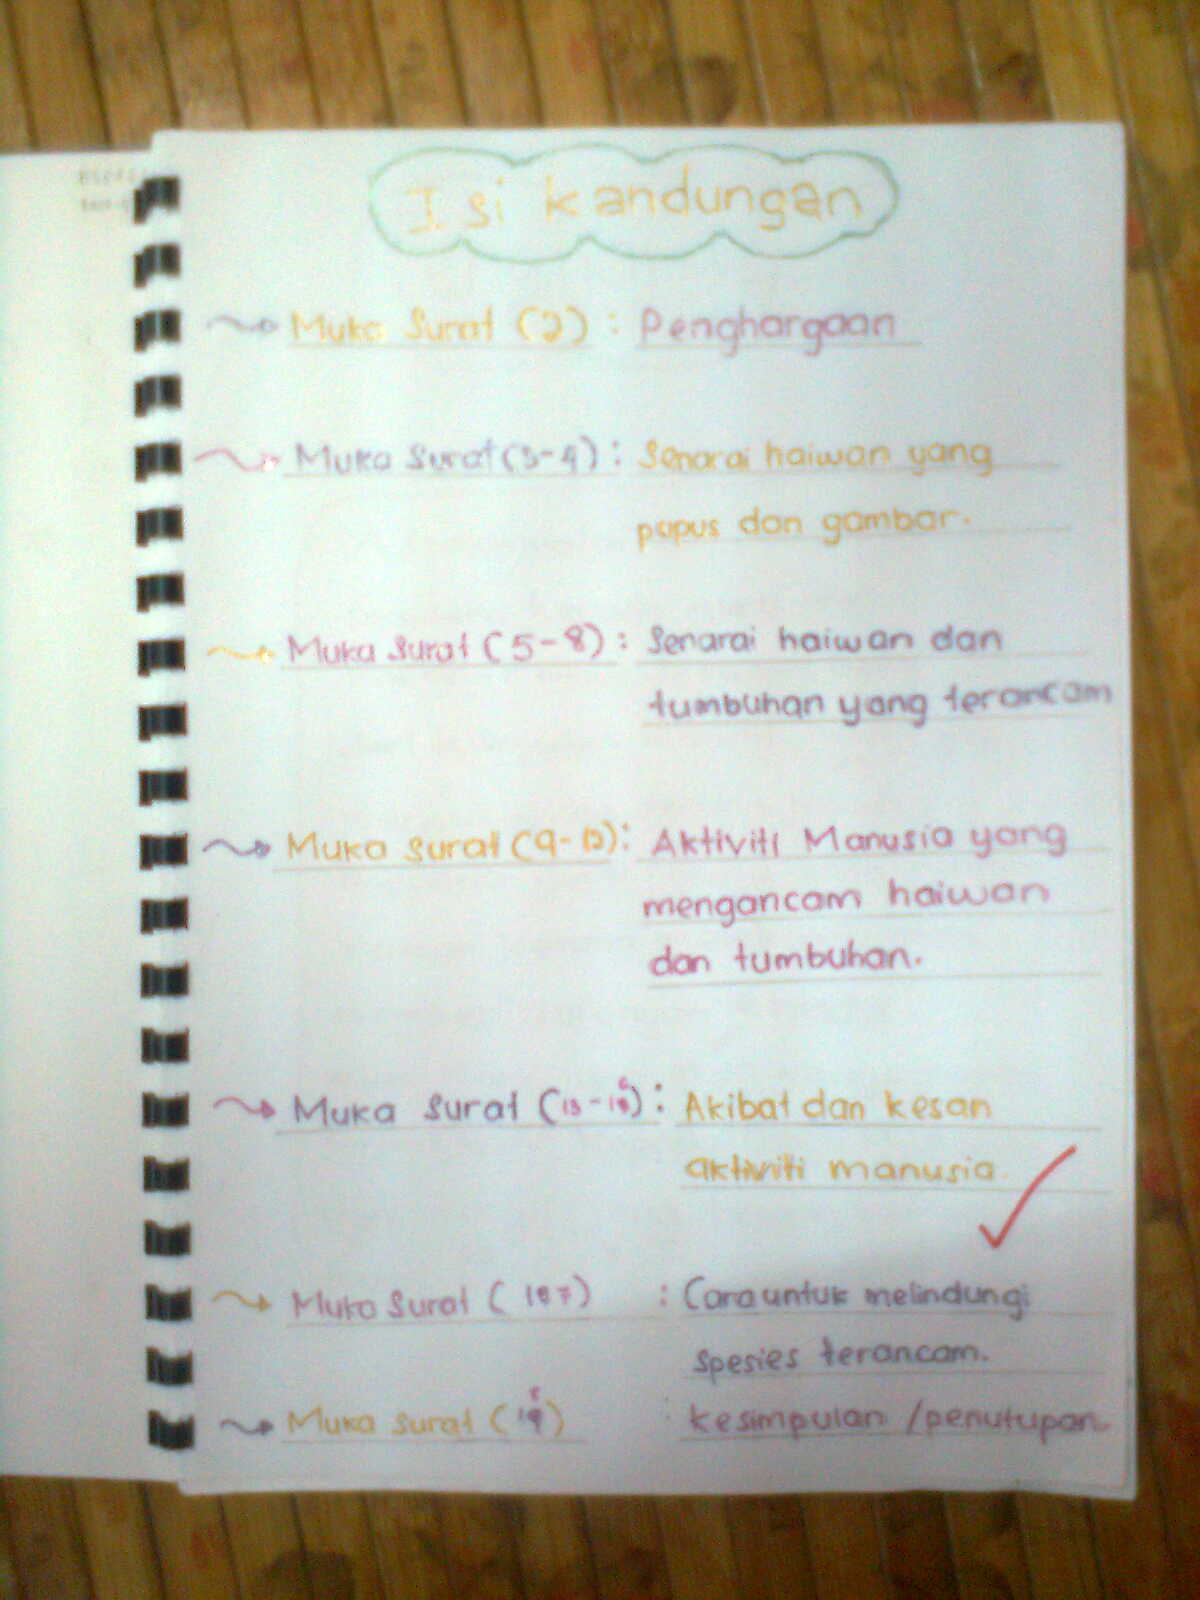 Isi kandungan
Muka Surat (2) : Penghargaan
Muka Surat (3-4) : Senarai haiwan yang
pupus dan gambar.
Muka Surat (5-8) : Senarai haiwan dan
tumbuhan yang terancam
Muka Surat (9-12) : Aktiviti Manusia yang
mengancam haiwan
dan tumbuhan.
Muka Surat (13-16) : Akibat dan kesan
aktiviti manusia
Muka Surat : Cara untuk melindungi
spesies terancam.
Muka Surat : kesimpulan / penutupan.